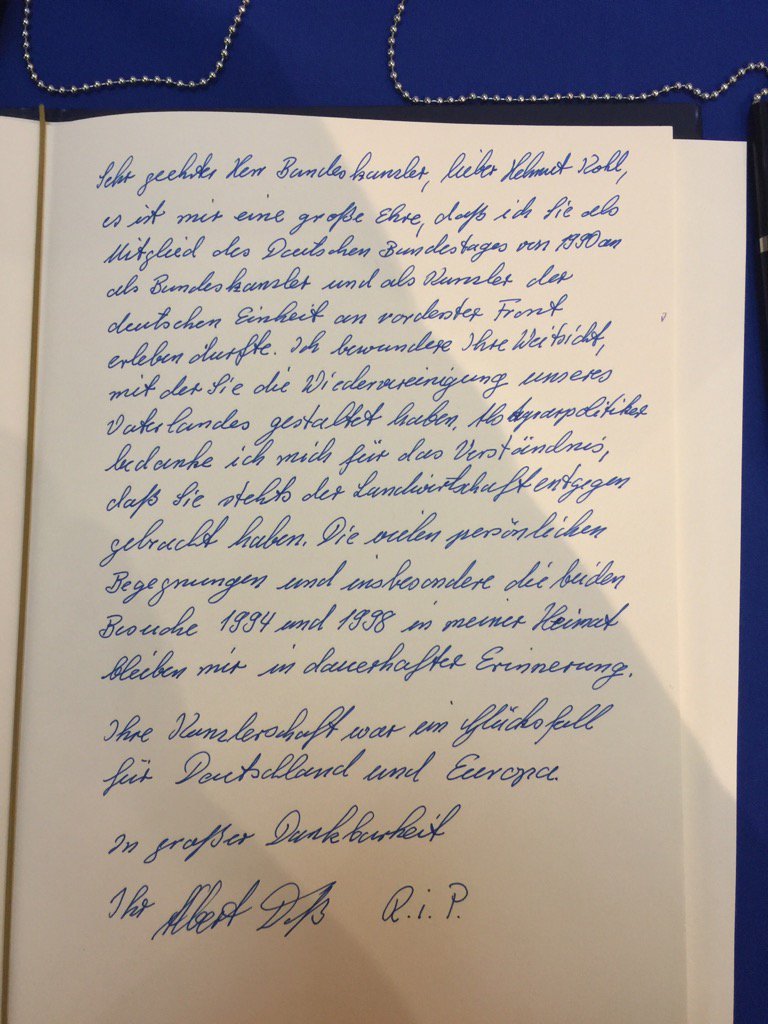 Sehr geehrter Herr Bundeskanzler, lieber Helmut Kohl,
es ist mir eine große Ehre, daß ich Sie als
Mitglied des Deutschen Bundestages von 1990 an
als Bundeskanzler und als Kanzler der
deutschen Einheit an vorderster Front
erleben durfte. Ich bewundere Ihre Weitsicht,
mit der Sie die Wiedervereinigung unseres
Vaterlandes gestaltet haben. Als Agrarpolitiker
bedanke ich mich für das Verständnis,
daß Sie stehts der Landwirtschaft entgegen
gebracht haben. Die vielen persönlichen
Begegnungen und insbesondere die beiden
Besuche 1994 und 1998 in meiner Heimat
bleiben mir in dauerhafter Erinnerung.
Ihre Kanzlerschaft war ein Glücksfall
für Deutschland und Europa.
In großer Dankbarkeit
Ihr Albert Deß R.i.P.